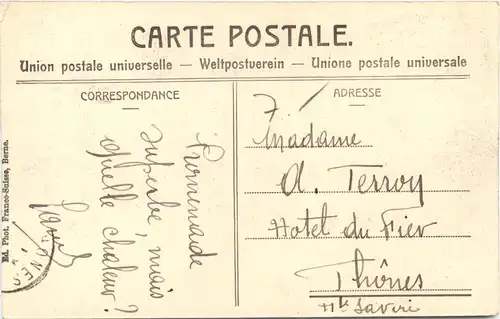 CARTE POSTALE.
Union postale universelle — Weltpostverein — Unione postale universale
CORRESPONDANCE
Promenade
superbe, mais
quelle chaleur?
ADRESSE
Madame
A. Terroy
Hotel du Fier
Thônes
Hte Savoie
Ed. Phot. Franco-Suisse, Berne.